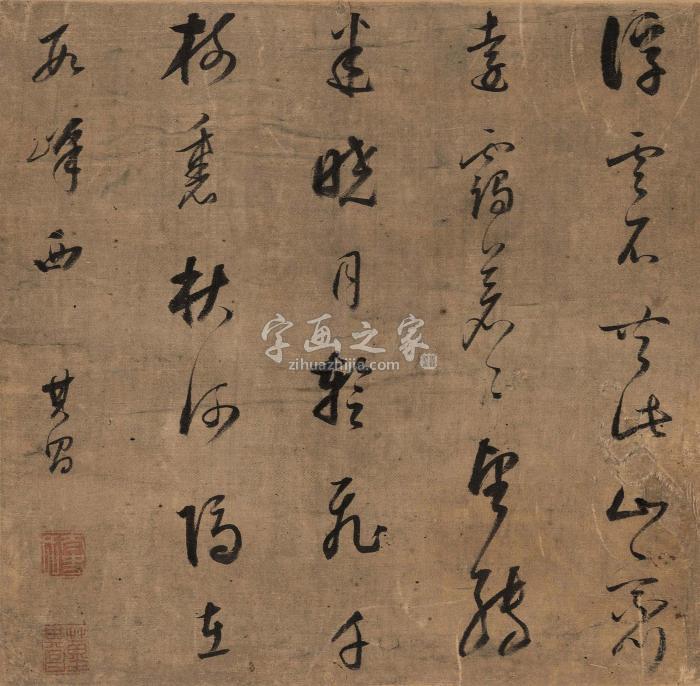 浮雲不共此山齊
靄蒼〻望轉
迷曉月暫飛千
樹裏秋河隔在
數峰西
其昌
字画之家
zihuazhijia.com